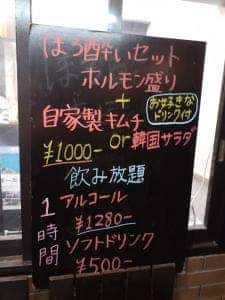 ほろ酔いセット
ホルモン盛り
+
お好きな
ドリンク付
自家製キムチ
or韓国サラダ
¥1000-
飲み放題
1時間
アルコール
¥1280-
ソフトドリンク
¥500-